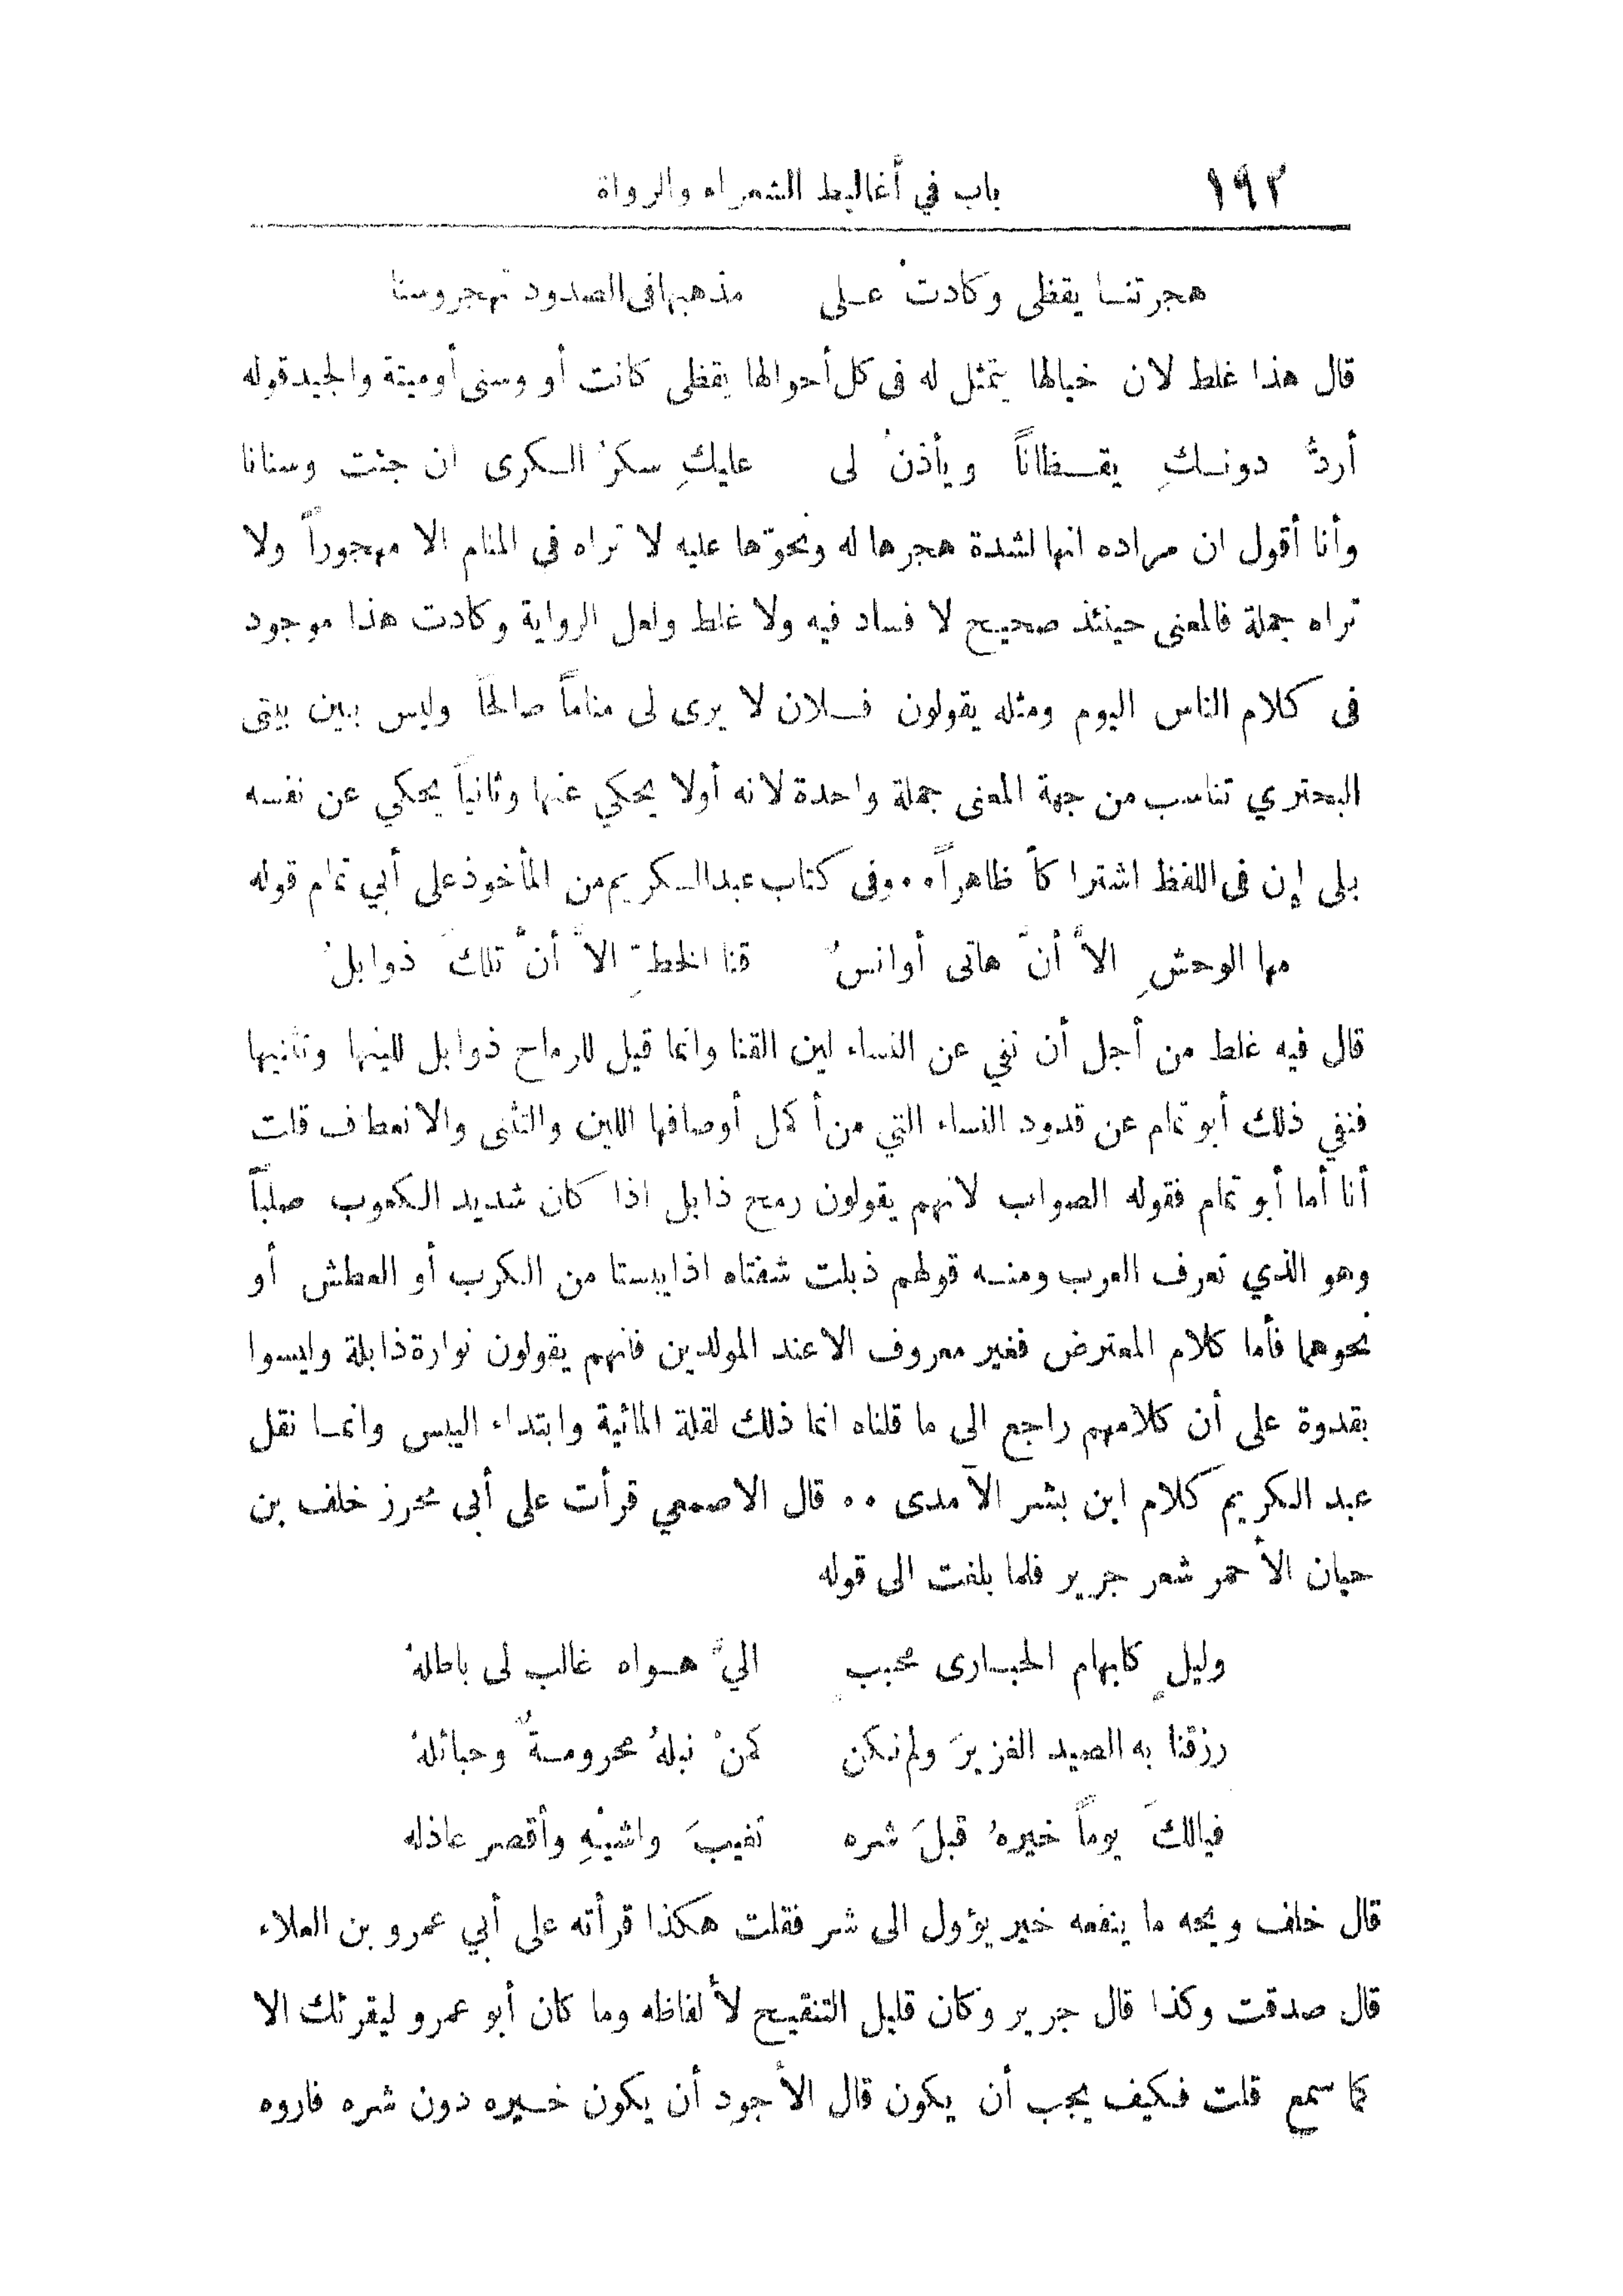 ١٩٢ باب في أغاليط الشعراء والرواة
هجرتنا يقظى وكادتْ عـلى مذهبها فى الصدود تهجر وسنا
قال هذا غلط لان خيالها يتمثل له فى كل أحوالها يقظى كانت أو وسنى أو ميتة والجيد قوله
أردُّ دونـكِ يقـظاناً ويأذنُ لى عليكِ سكرُ الـكرى ان جئت وسنانا
وأنا أقول ان مراده انها لشدة هجرها له ونحوّها عليه لا تراه فى المنام الا مهجوراً ولا
تراه جملة فالمعنى حينئذ صحيح لا فساد فيه ولا غلط ولعل الرواية وكادت هذا موجود
فى كلام الناس اليوم ومثله يقولون فـلان لا يرى لى مناماً صالحاً وليس بين بيتى
البحتري تناسب من جهة المعنى جملة واحدة لانه أولا يحكي عنها وثانياً يحكي عن نفسه
بلى إن فى اللفظ اشتراكاً ظاهراً ٠٠ وفى كتاب عبد الـكريم من المأخوذ على أبي تمام قوله
مها الوحشِ الاَّ أنَّ هاتى أوانسُ قنا الخطِّ الاَّ أنَّ تلكَ ذوابلُ
قال فيه غلط من أجل أن نفي عن النساء لين القنا وانما قيل للرماح ذوابل للينها وتثنيها
فنفي ذلك أبو تمام عن قدود النساء التي من أكمل أوصافها اللين والتثنى والانعطاف قلت
أنا أما أبو تمام فقوله الصواب لانهم يقولون رمح ذابل اذا كان شديد الـكعوب صلباً
وهو الذي تعرف العرب ومنـه قولهم ذبلت شفتاه اذا يبستا من الـكرب أو العطش أو
نحوهما فأما كلام المعترض فغير معروف الا عند المولدين فانهم يقولون نوارة ذابلة وليسوا
بقدوة على أن كلامهم راجع الى ما قلناه انما ذلك لقلة المائية وابتداء اليبس وانمـا نقل
عبد الـكريم كلام ابن بشر الآمدى ٠٠ قال الاصمعي قرأت على أبى محرز خلف بن
حيان الأحمر شعر جرير فلما بلغت الى قوله
وليلٍ كابهام الحبـارى محببٍ اليَّ هـواه غالب لى باطلهُ
رزقنا به الصيد الغزيرَ ولم نـكن كمنْ نبلهُ محرومـةٌ وحبائلهُ
فيالكَ يوماً خيرهُ قبلَ شره تغيبَ واشيْهِ وأقصر عاذله
قال خلف ويحه ما ينفعه خير يؤول الى شر فقلت هكذا قرأته على أبي عمرو بن العلاء
قال صدقت وكذا قال جرير وكان قليل التنقيح لألفاظه وما كان أبو عمرو ليقرئك الا
كما سمع قلت فـكيف يجب أن يكون قال الأجود أن يكون خـيره دون شره فاروه